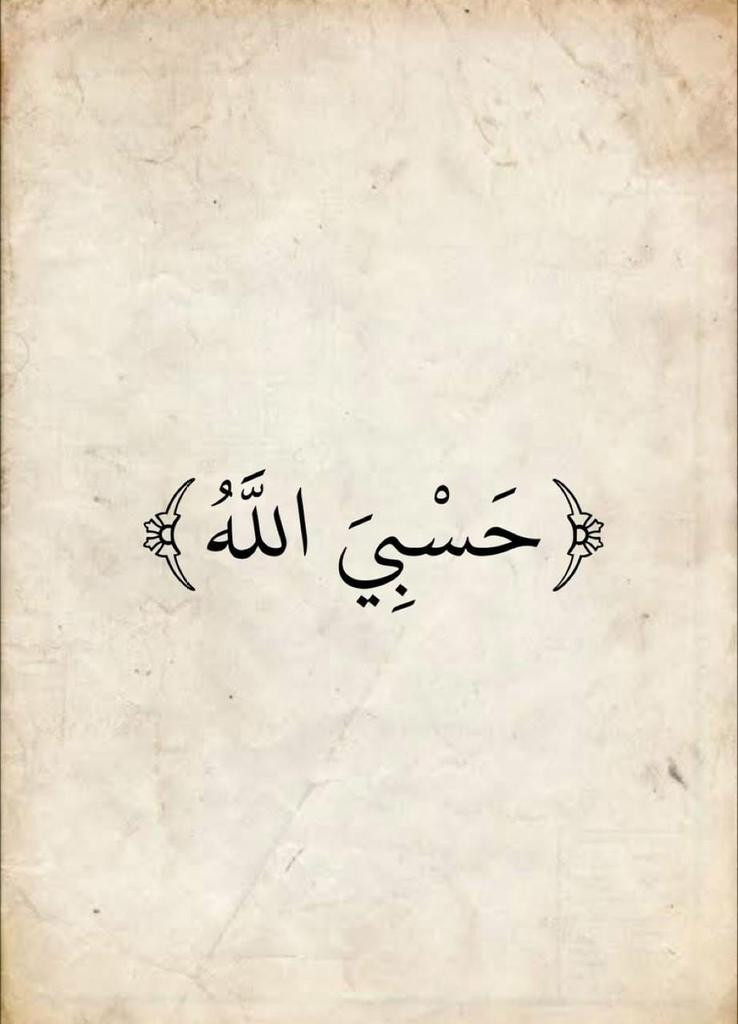 ﴿ حَسْبِيَ اللَّهُ ﴾